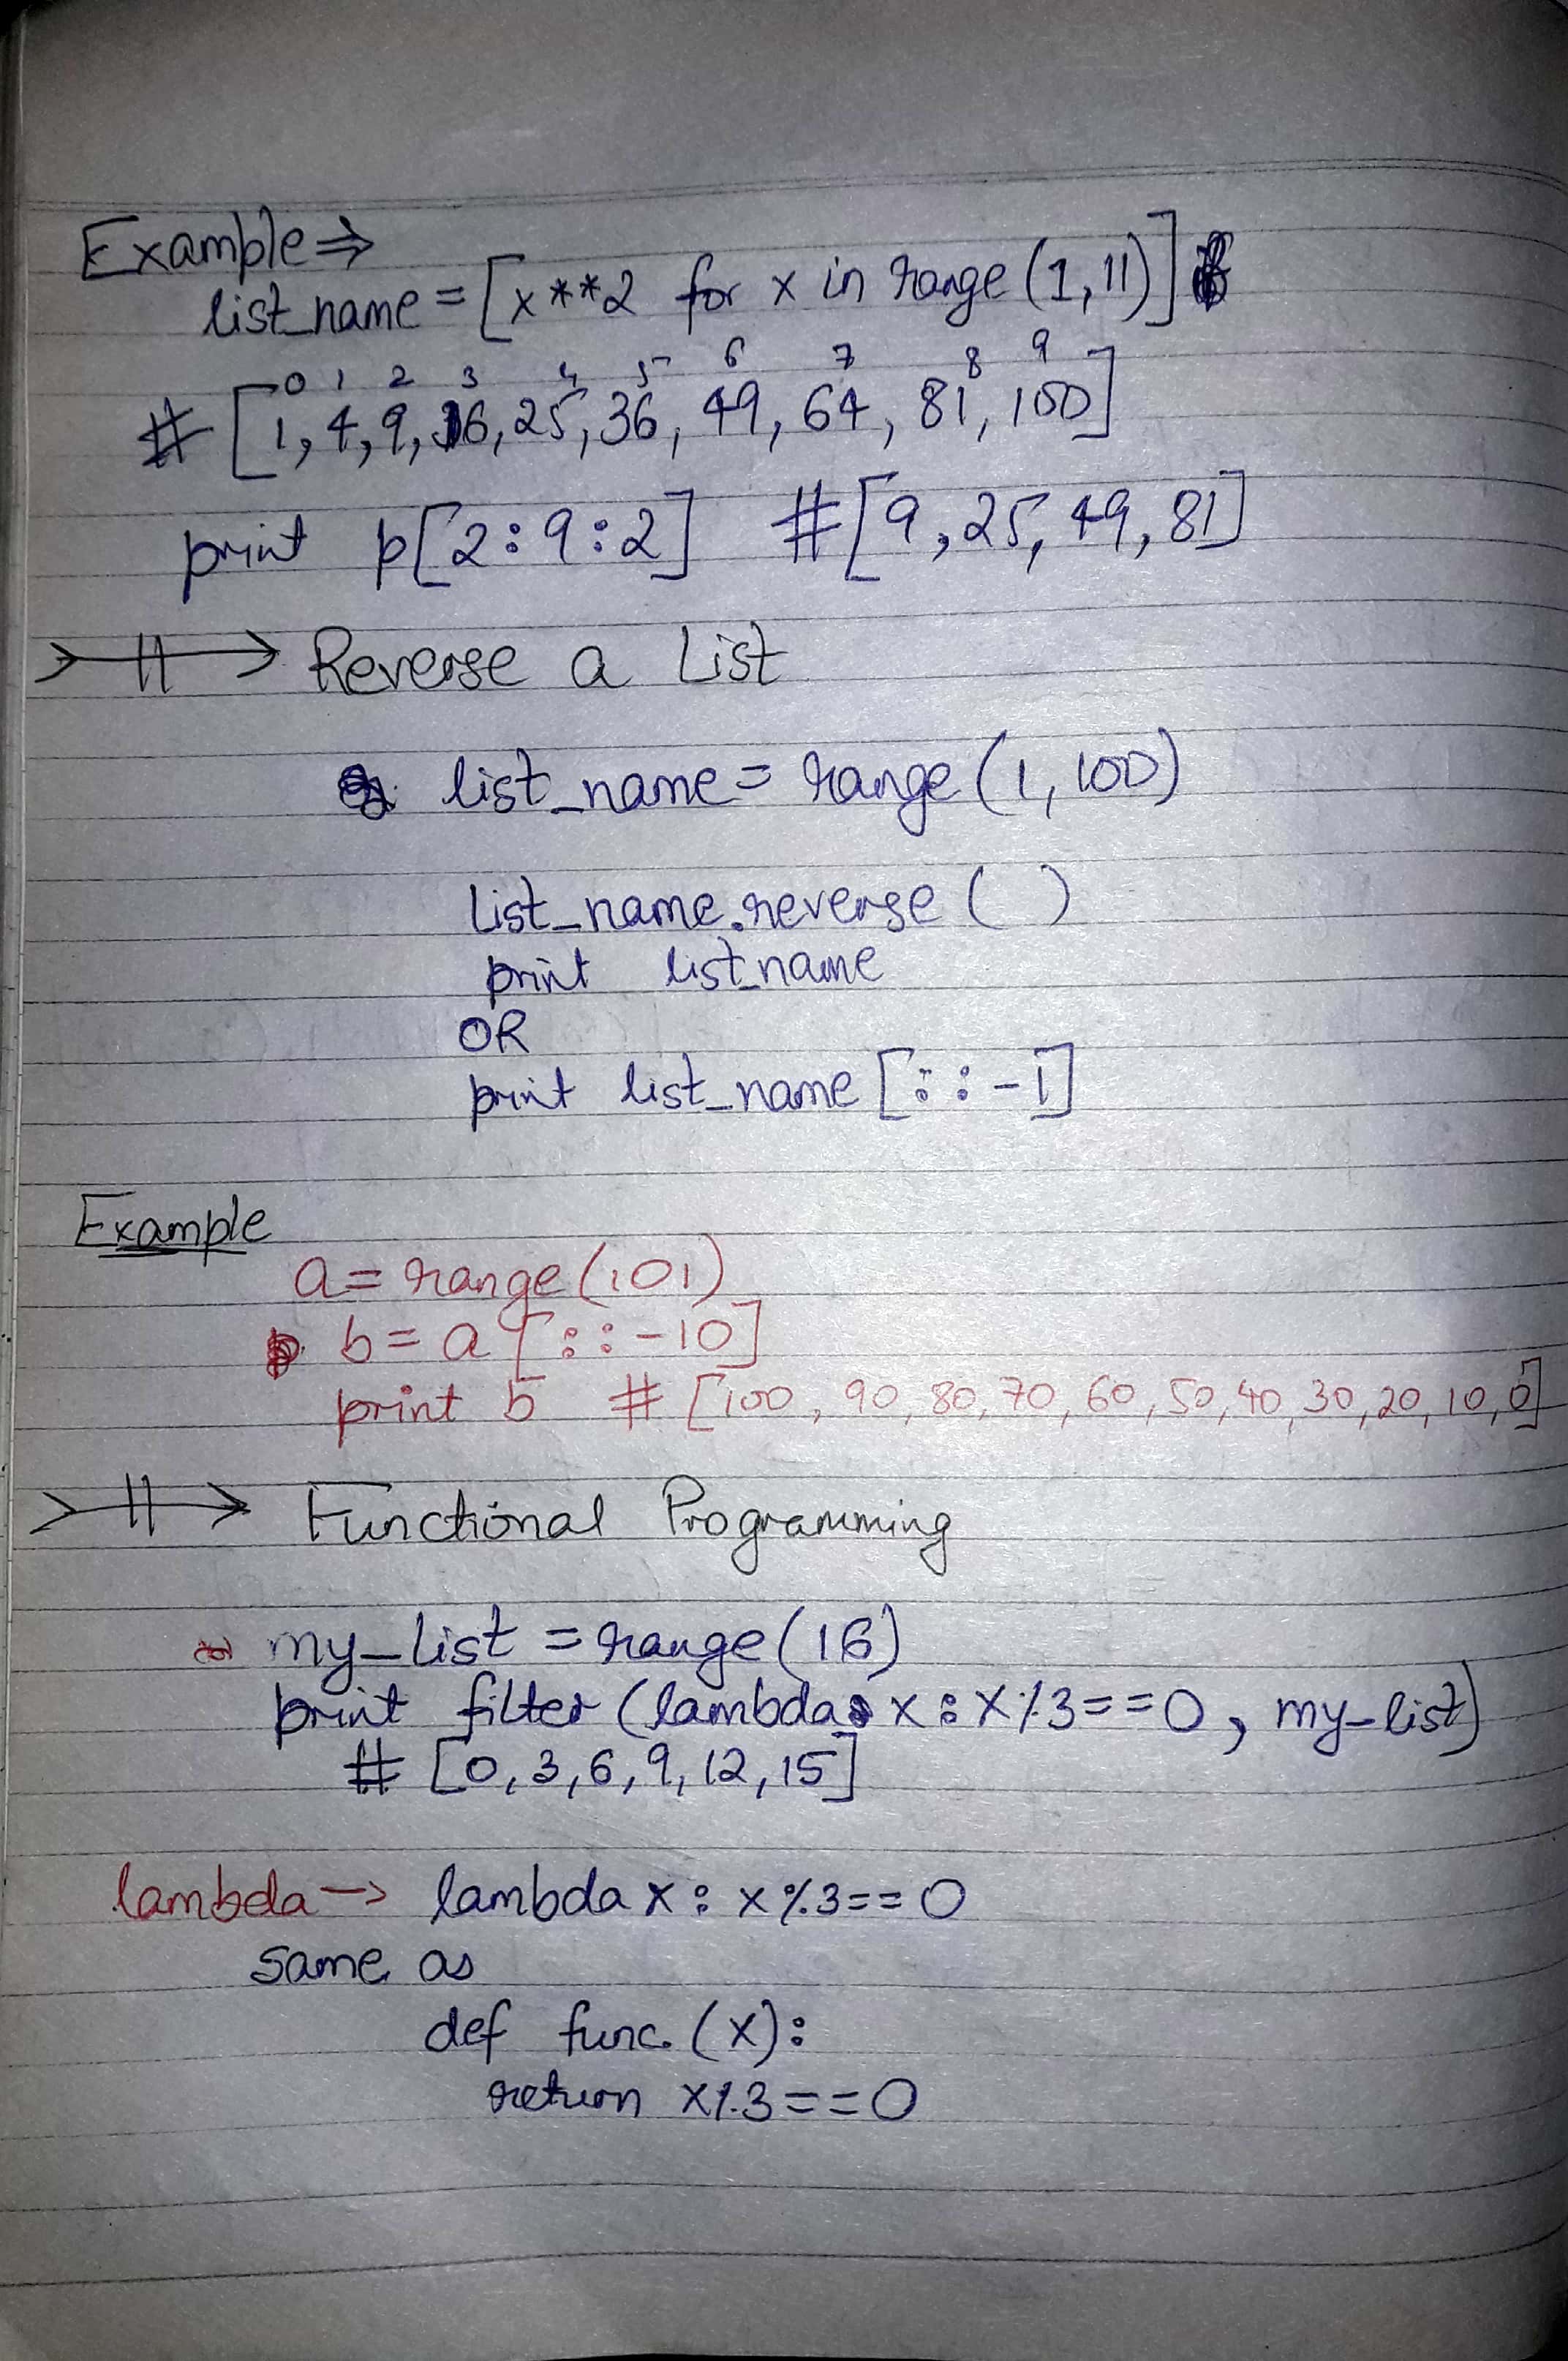 Example ⇒
list_name = [x**2 for x in range (1,11)]
0 1 2 3 4 5 6 7 8 9
# [1, 4, 9, 16, 25, 36, 49, 64, 81, 100]
print p[2:9:2] # [9, 25, 49, 81]
Reverse a List
list_name = range (1, 100)
list_name.reverse ( )
print list_name
OR
print list_name [::-1]
Example
a = range (101)
b = a [::-10]
print b # [100, 90, 80, 70, 60, 50, 40, 30, 20, 10, 0]
Functional Programming
my_list = range (16)
print filter (lambda x: x%3==0, my_list)
# [0, 3, 6, 9, 12, 15]
lambda → lambda x: x%3==0
same as
def func. (x):
return x%3==0